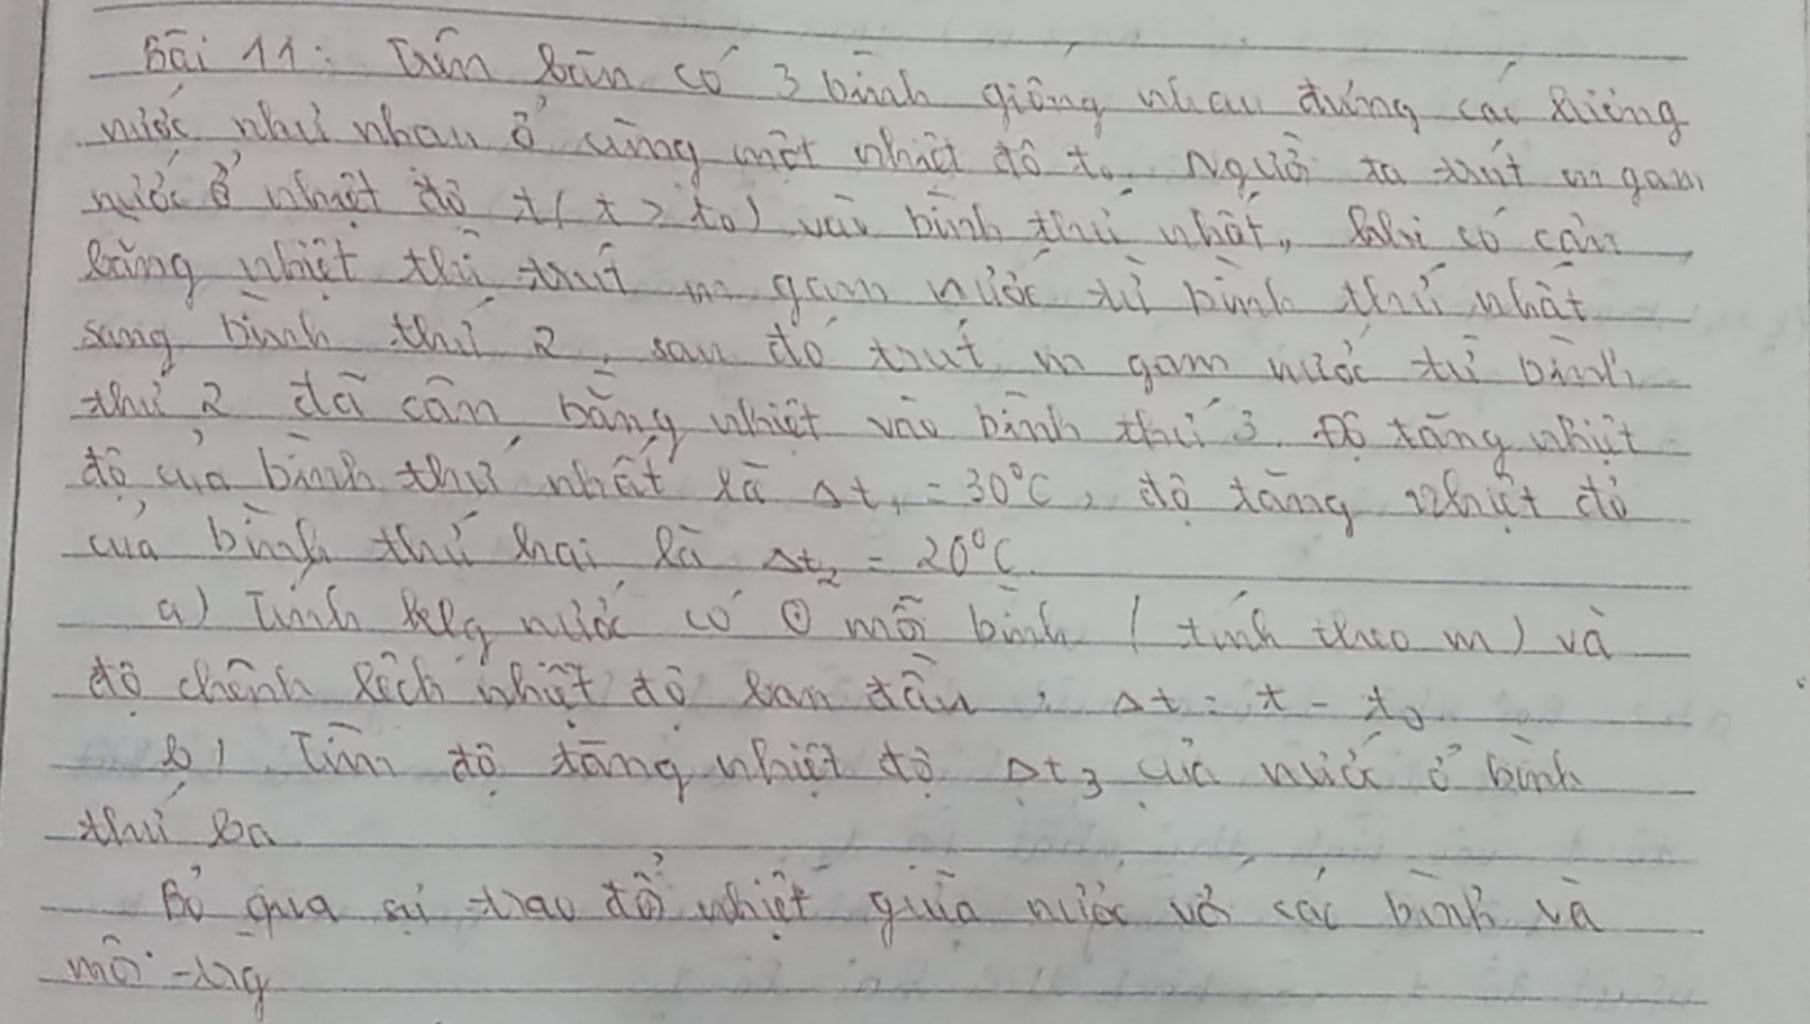 Bài 11: Trên bàn có 3 bình giống nhau đựng các lượng
nước như nhau ở cùng một nhiệt độ t₀. Người ta trút m gam
nước ở nhiệt độ t (t > t₀) vào bình thứ nhất, khi có cân
bằng nhiệt thì trút m gam nước từ bình thứ nhất
sang bình thứ 2, sau đó trút m gam nước từ bình
thứ 2 đã cân bằng nhiệt vào bình thứ 3. Độ tăng nhiệt
độ của bình thứ nhất là Δt₁ = 30°C, độ tăng nhiệt độ
của bình thứ hai là Δt₂ = 20°C.
a) Tính klg nước có ở mỗi bình (tính theo m) và
độ chênh lệch nhiệt độ ban đầu: Δt = t - t₀
b) Tìm độ tăng nhiệt độ Δt₃ của nước ở bình
thứ ba
Bỏ qua sự trao đổi nhiệt giữa nước với các bình và
môi trg